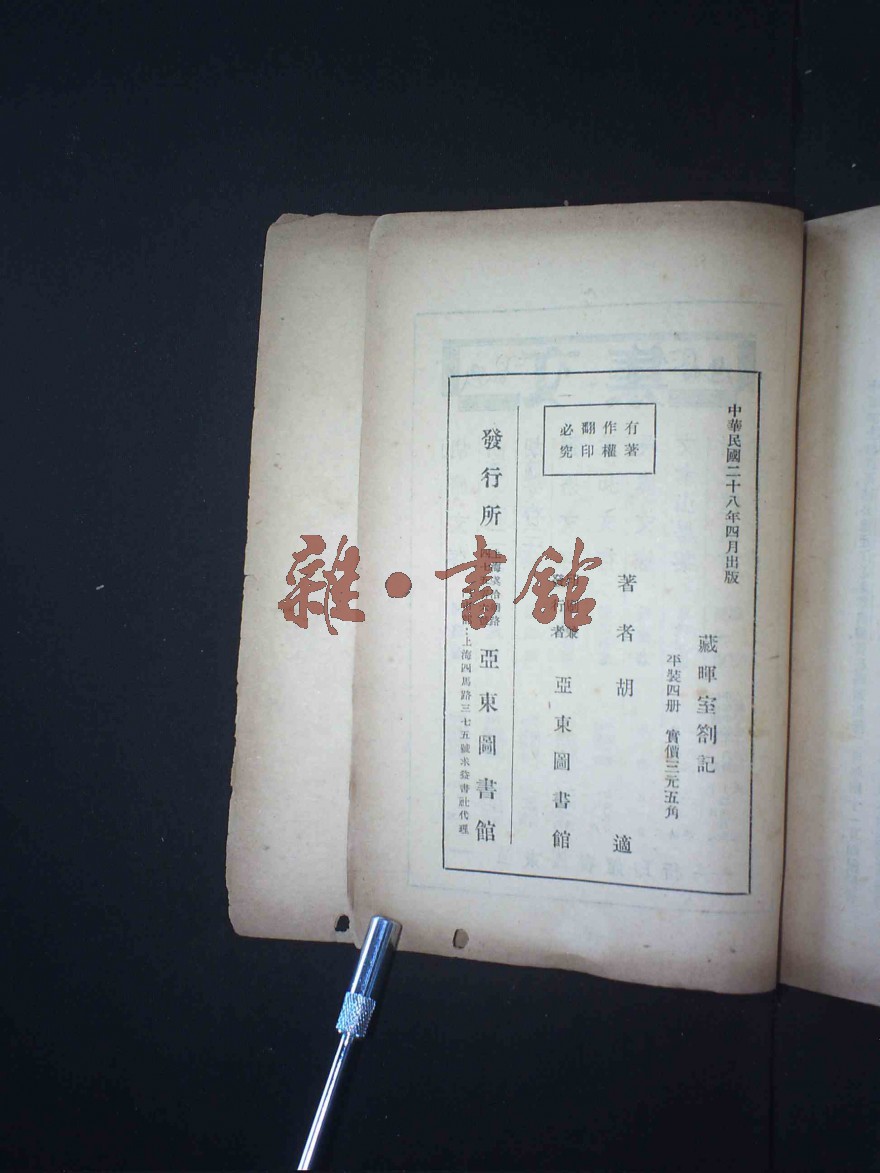 中華民國二十八年四月出版
藏暉室劄記
平裝四册　實價三元五角
有著
作權
翻印
必究
著者　胡適
發行者　亞東圖書館
發行所　亞東圖書館
上海四馬路三七五號求益書社代理
雜·書館